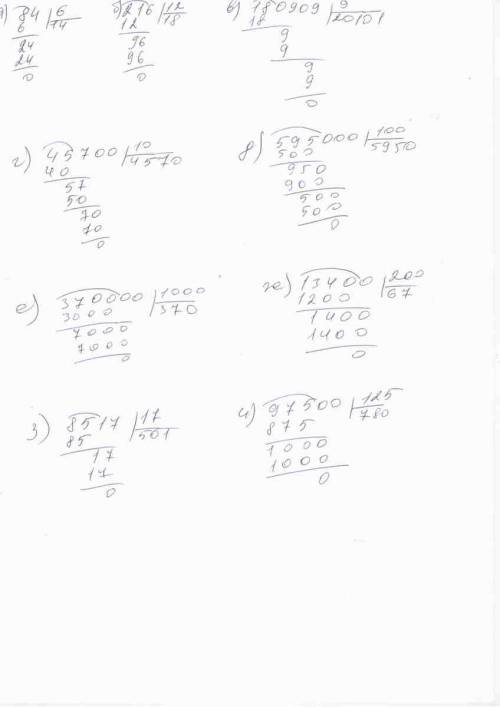 а) 84 | 6 б) 216 | 12 в) 180909 | 9
6 14 12 18 18 20101
24 96 9
24 96 9
0 0 9
9
0
г) 45700 | 10 д) 595000 | 100
40 4570 500 5950
57 950
50 900
70 500
70 500
0 0
е) 370000 | 1000 ж) 13400 | 200
3000 370 1200 67
7000 1400
7000 1400
0 0
з) 8517 | 17 и) 97500 | 125
85 501 875 780
17 1000
17 1000
0 0